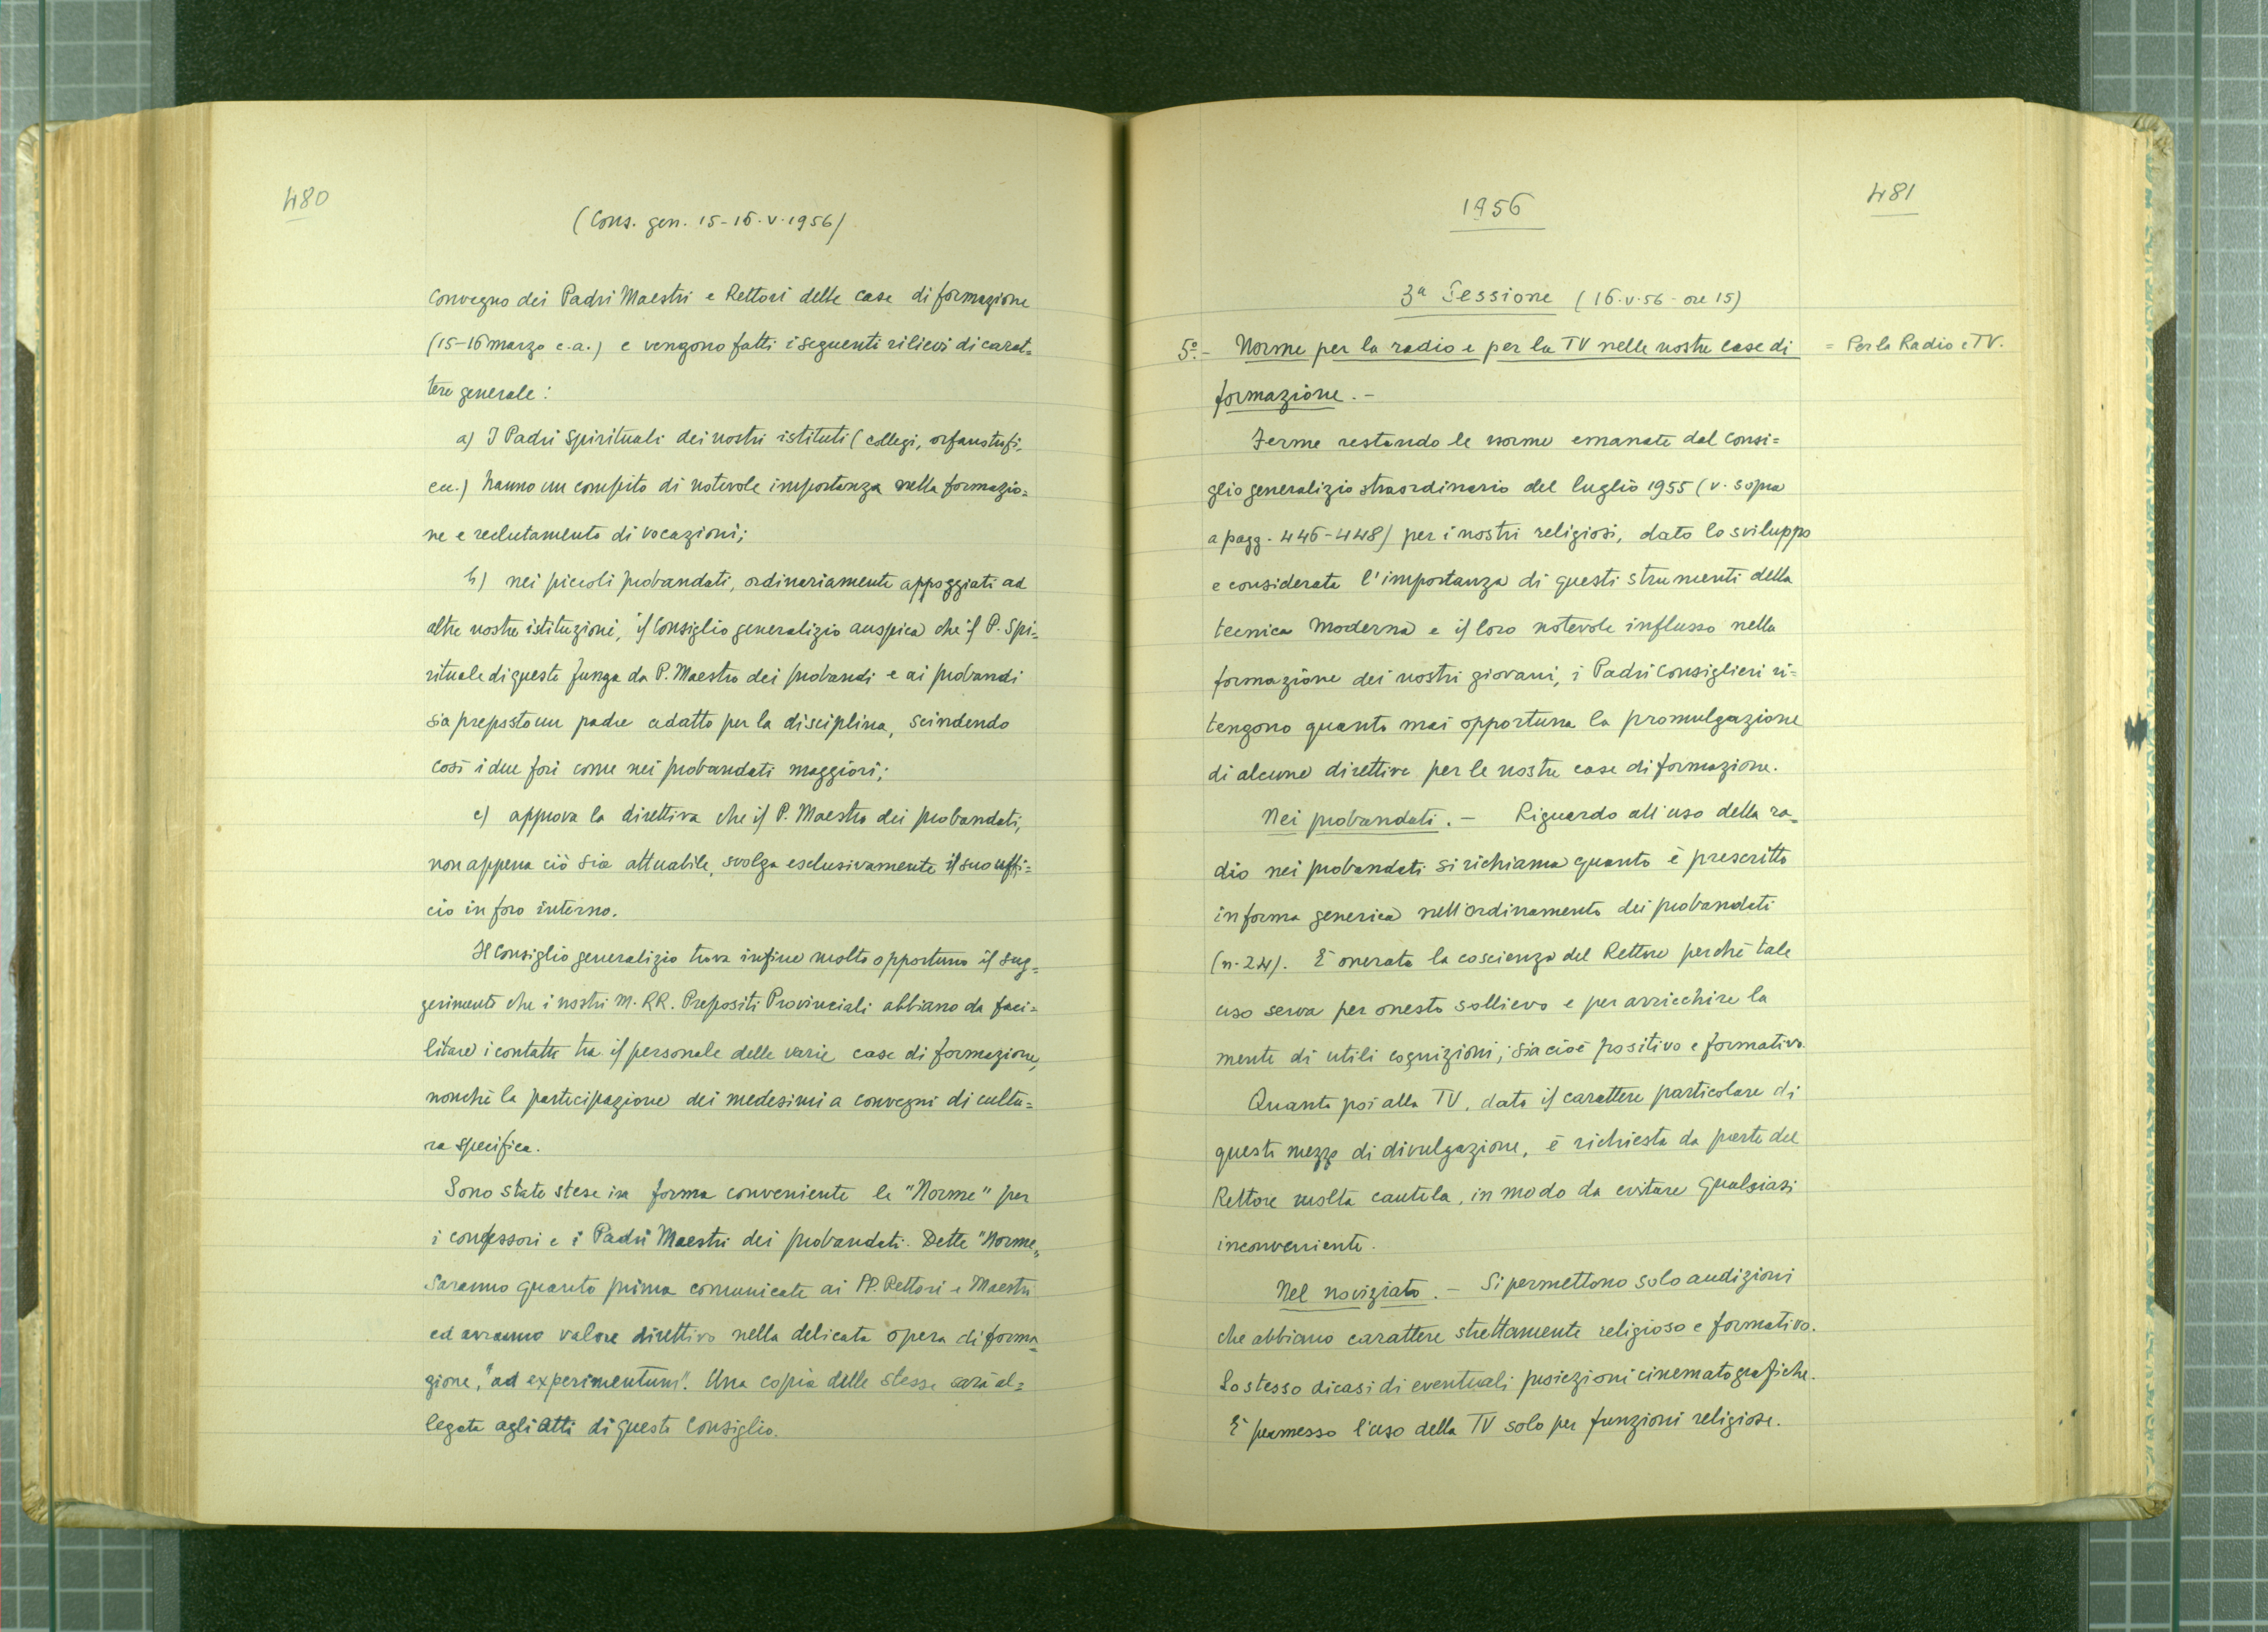 480
(Cons. gen. 15-16.V.1956)
Convegno dei Padri Maestri e Rettori delle case di formazione
(15-16 marzo c.a.) e vengono fatti i seguenti rilievi di carat=
tere generale:
a) I Padri Spirituali dei nostri istituti (collegi, orfanotrofi,
ecc.) hanno un compito di notevole importanza nella formazio=
ne e reclutamento di vocazioni;
b) nei piccoli probandati, ordinariamente appoggiati ad
altre nostre istituzioni, il Consiglio generalizio auspica che il P. Spi=
rituale di queste funga da P. Maestro dei probandi e ai probandi
sia preposto un padre adatto per la disciplina, scindendo
così i due fori come nei probandati maggiori;
c) approva la direttiva che il P. Maestro dei probandati,
non appena ciò sia attuabile, svolga esclusivamente il suo uffi=
cio in foro interno.
Il Consiglio generalizio trova infine molto opportuno il sug=
gerimento che i nostri M. RR. Prepositi Provinciali abbiano da faci=
litare i contatti tra il personale delle varie case di formazione,
nonché la partecipazione dei medesimi a convegni di cultu=
ra specifica.
Sono state stese in forma conveniente le "Norme" per
i confessori e i Padri Maestri dei probandati. Dette "Norme"
saranno quanto prima comunicate ai PP. Rettori e Maestri
ed avranno valore direttivo nella delicata opera di forma=
zione, "ad experimentum". Una copia delle stesse sarà al=
legata agli atti di questo Consiglio.
1956
481
3ª Sessione (16.V.56 - ore 15)
5º.- Norme per la radio e per la TV nelle nostre case di
= Per la Radio e TV.
formazione. -
Ferme restando le norme emanate dal Consi=
glio generalizio straordinario del luglio 1955 (v. sopra
a pagg. 446-448) per i nostri religiosi, dato lo sviluppo
e considerata l'importanza di questi strumenti della
tecnica moderna e il loro notevole influsso nella
formazione dei nostri giovani, i Padri Consiglieri ri=
tengono quanto mai opportuna la promulgazione
di alcune direttive per le nostre case di formazione.
Nei probandati. - Riguardo all'uso della ra=
dio nei probandati si richiama quanto è prescritto
in forma generica nell'Ordinamento dei probandati
(n. 24). È onerata la coscienza del Rettore perché tale
uso serva per onesto sollievo e per arricchire la
mente di utili cognizioni; sia cioè positivo e formativo.
Quanto poi alla TV, dato il carattere particolare di
questo mezzo di divulgazione, è richiesta da parte del
Rettore molta cautela, in modo da evitare qualsiasi
inconveniente.
Nel noviziato. - Si permettono solo audizioni
che abbiano carattere strettamente religioso e formativo.
Lo stesso dicasi di eventuali proiezioni cinematografiche.
È permesso l'uso della TV solo per funzioni religiose.